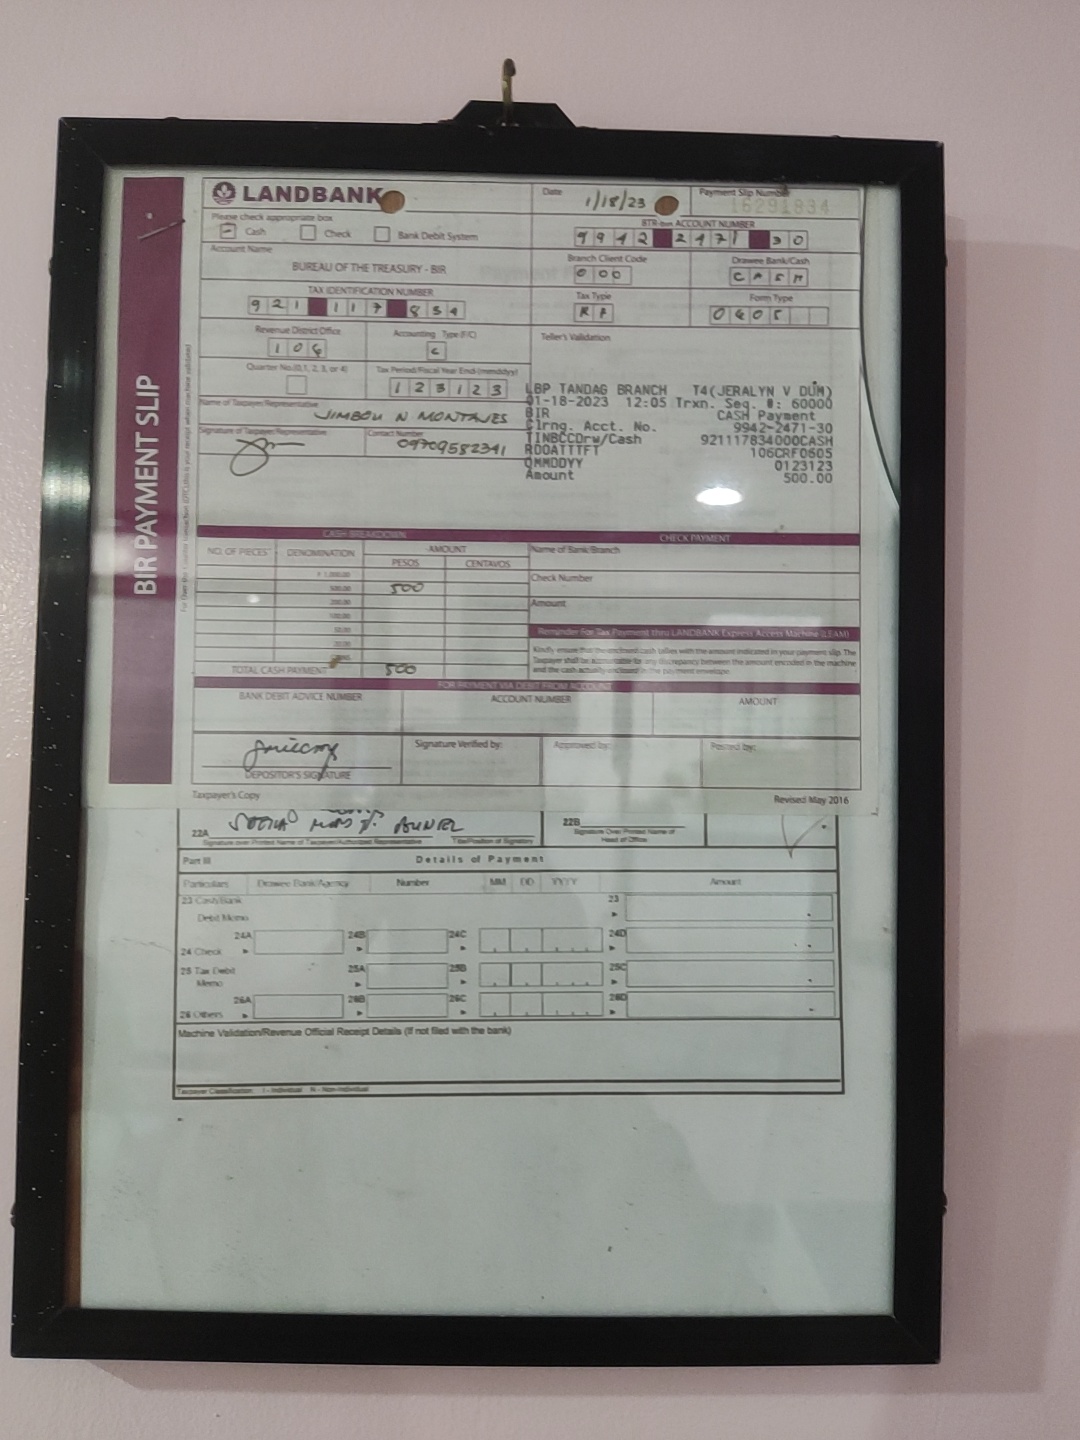 BIR PAYMENT SLIP
LANDBANK
Date 1/18/23
Payment Slip Number
16291834
Please check appropriate box
Cash Check Bank Debit System
BTR-BIR ACCOUNT NUMBER
9942 2471 30
Account Name
BUREAU OF THE TREASURY - BIR
Branch Client Code
000
Drawee Bank/Cash
CASH
TAX IDENTIFICATION NUMBER
921 117 834
Tax Type
RF
Form Type
0605
Revenue District Office
106
Accounting Type (F/C)
C
Teller's Validation
Quarter No.(0,1, 2, 3, or 4)
Tax Period/Fiscal Year End-(mmddyy)
123123
Name of Taxpayer/Representative
JIMBOU N MONTAJES
Signature of Taxpayer/Representative
Contact Number
09709582341
LBP TANDAG BRANCH T4(JERALYN V DUM)
01-18-2023 12:05 Trxn. Seq. #: 60000
BIR CASH Payment
Clrng. Acct. No. 9942-2471-30
TINBCCDrw/Cash 921117834000CASH
RDOATTTFT 106CRF0605
QMMDDYY 0123123
Amount 500.00
CASH BREAKDOWN
CHECK PAYMENT
NO. OF PIECES DENOMINATION AMOUNT
PESOS CENTAVOS
Name of Bank/Branch
1,000.00
500.00 500
200.00
100.00
50.00
20.00
Check Number
Amount
Reminder For Tax Payment thru LANDBANK Express Access Machine (LEAM)
Kindly ensure that the enclosed cash tallies with the amount indicated in your payment slip. The
Taxpayer shall be accountable for any discrepancy between the amount encoded in the machine
and the cash actually enclosed in the payment envelope.
TOTAL CASH PAYMENT 500
FOR PAYMENT VIA DEBIT FROM ACCOUNT
BANK DEBIT ADVICE NUMBER ACCOUNT NUMBER AMOUNT
DEPOSITOR'S SIGNATURE
Signature Verified by: Approved by: Posted by:
Taxpayer's Copy
Revised May 2016
22A
22B
Signature over Printed Name of Taxpayer/Authorized Representative Title/Position of Signatory
Signature Over Printed Name of
Head of Office
Part III Details of Payment
Particulars Drawee Bank/Agency Number MM DD YYYY Amount
23 Cash/Bank 23
Debit Memo
24A 24B 24C 24D
24 Check
25 Tax Debit 25A 25B 25C
Memo
26A 26B 26C 26D
26 Others
Machine Validation/Revenue Official Receipt Details (If not filed with the bank)
Taxpayer Classification: I - Individual N - Non-Individual